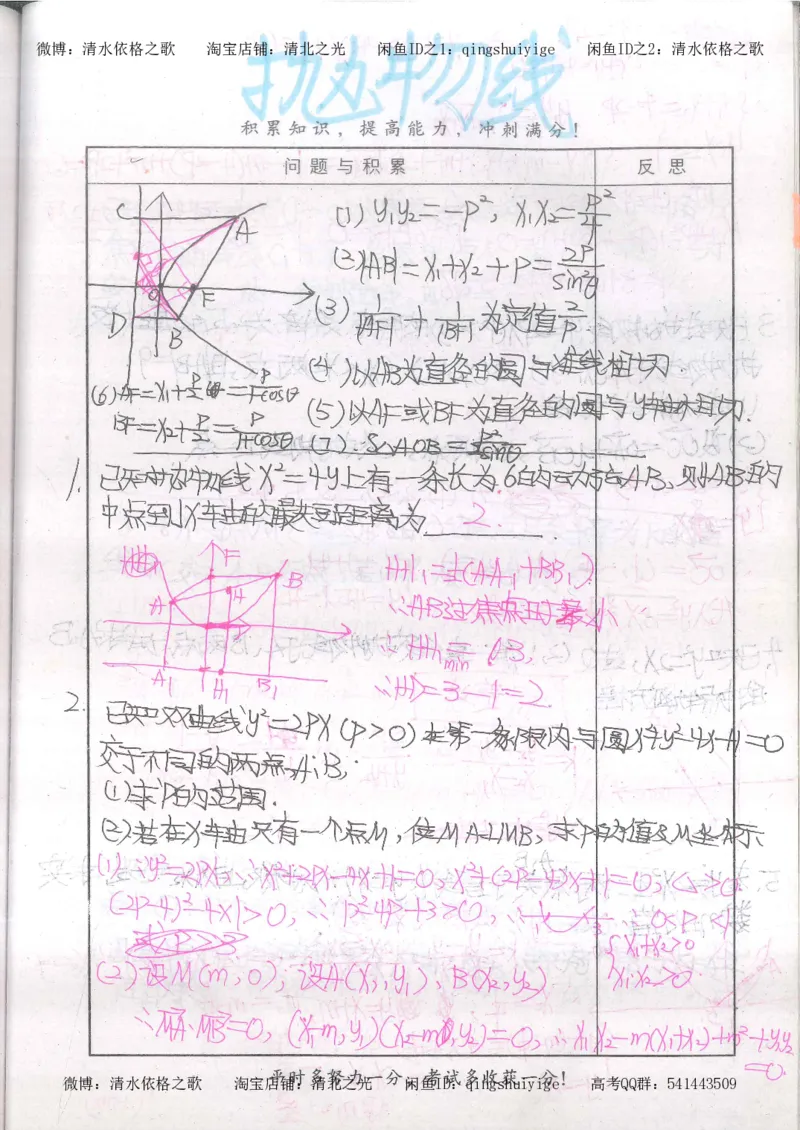 微博：清水依格之歌 淘宝店铺：清北之光 闲鱼ID之1：qingshuiyige 闲鱼ID之2：清水依格之歌
抛物线
积累知识，提高能力，冲刺满分！
问题与积累 反思
C A O F D B
(1) y₁y₂=-p², x₁x₂=p²/4
(2)|AB|=x₁+x₂+p=2p/sin²θ
(3) 1/|AF|+1/|BF|为定值2/p
(4)以AB为直径的圆与准线相切.
(5)以AF或BF为直径的圆与y轴相切.
(6)AF=x₁+p/2=p/1-cosθ
BF=x₂+p/2=p/1+cosθ
(7).S△AOB=p²/2sinθ
1. 已知抛物线x²=4y上有一条长为6的动弦AB,则AB的
中点到x轴的最短距离为 2.
F B A H A₁ H₁ B₁
HH₁=½(AA₁+BB₁)
∴AB过焦点时最小
∴HH₁min=3,
∴H=3-1=2
2. 已知双曲线y²=2PX(P>0)在第一象限内与圆x²+y²-4x+1=0
交于不同的两点A,B,
(1)求P的范围.
(2)若在x轴只有一个点M,使MA⊥MB,求P的值&M坐标
(1)∵y²=2Px,∴x²+2Px-4x+1=0,x²+(2P-4)x+1=0,△>0
(2P-4)²-4×1>0,∴P²-4P+3>0,∴ 0<P<1
或P>3
x₁+x₂>0
x₁x₂>0
(2)设M(m,0),设A(x₁,y₁),B(x₂,y₂)
∴MA·MB=0,(x₁-m,y₁)(x₂-m,y₂)=0,∴x₁x₂-m(x₁+x₂)+m²+y₁y₂
=0.
平时多努力一分，考试多收获一分！
微博：清水依格之歌 淘宝店铺：清北之光 闲鱼ID：qingshuiyige 高考QQ群：541443509